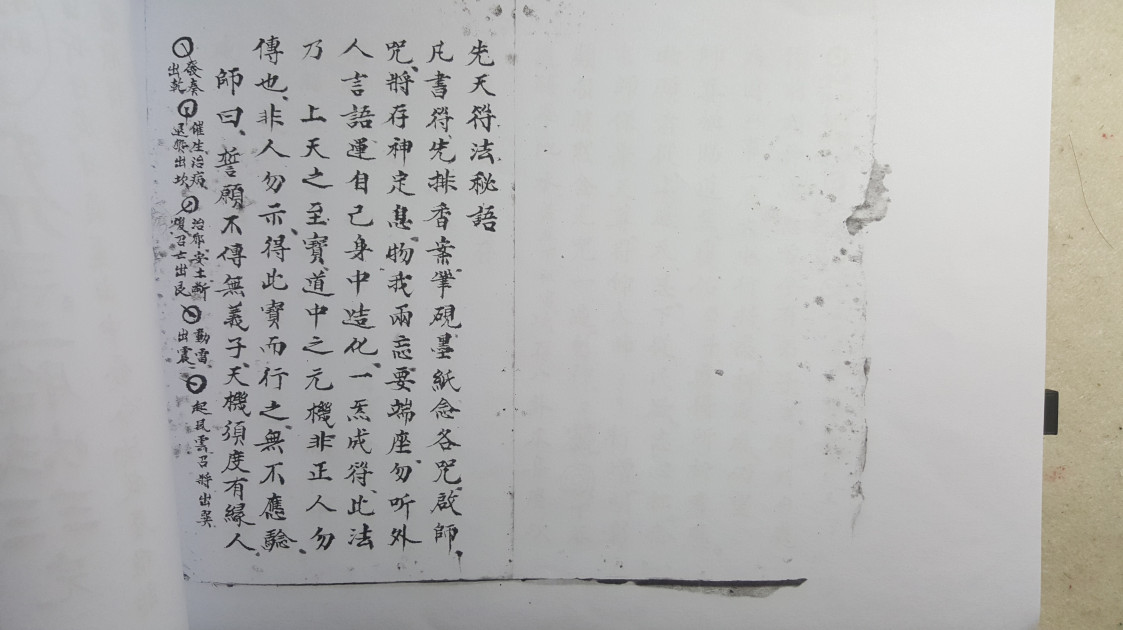 先天符法秘語
凡書符、先排香案筆硯墨紙念各咒、啟師、
咒、將存神定息、物我兩忘、要端座、勿听外
人言語運自己身中造化、一炁成符、此法
乃　上天之至寳、道中之元機非正人勿
傳也、非人勿示、得此寳而行之、無不應驗、
師曰、誓願不傳無義子、天機須度有緣人、
發奏出乾
催生治病退邪出坎
治邪安土斬煞召亡出艮
動雷出震
起風雲召將出巽